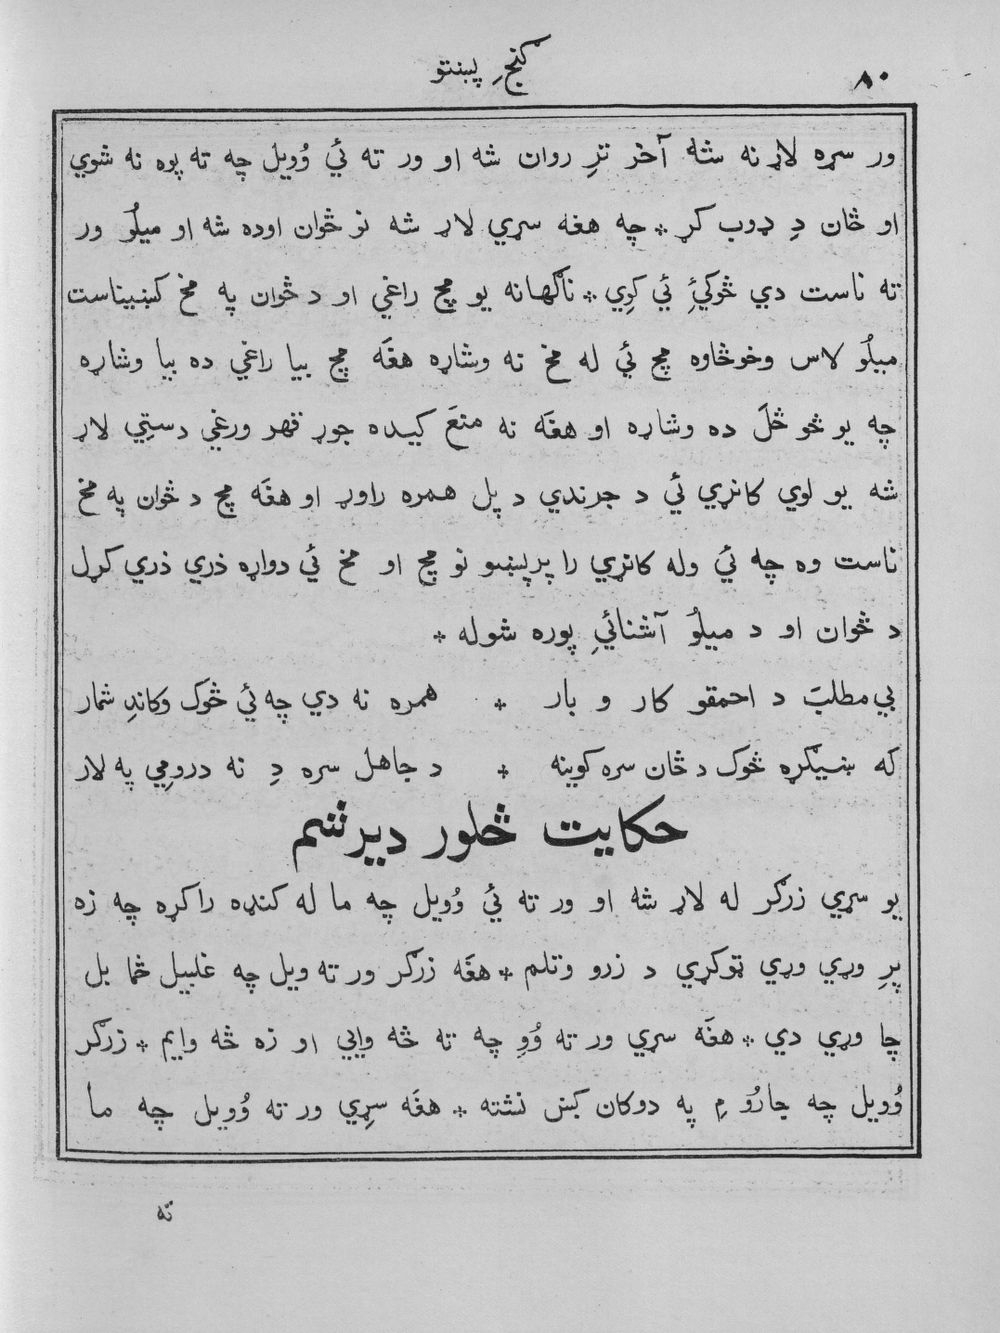 گنجِ پښتو
۸۰
ور سره لاړ نه شه آخر ترِ روان شه او ور ته ئي وُويل چه ته پوه نه شوي
او ځان دِ ډوب کړ * چه هغه سړي لاړ شه نو ځوان اوده شه او ميلُو ور
ته ناست دي څوکئِ ئي کوِي * ناگهانه يو مچ راغي او د ځوان په مخ کښيناست
ميلُو لاس وخوځاوه مچ ئي له مخ نه وشاړه هغَه مچ بيا راغي ده بيا وشاړه
چه يو څو ځلَ ده وشاړه او هغَه نه منعَ کيده جوړ قهر ورغي دستِي لاړ
شه يو لوي کانړي ئي د جرندي د پل همره راوړ او هغَه مچ د ځوان په مخ
ناست وه چه ئي وله کانړي را پرېښو نو مچ او مخ ئي دواړه ذري ذري کړل
د ځوان او د ميلُو آشنائيِ پوره شوله *
بي مطلبَ د احمقو کار و بار * همره نه دي چه ئي څوک وکاندِ شمار
که ښيگړه څوک د ځان سره کوينه * د جاهل سره دِ نه درومِي په لار
حکايت څلور ديرشم
يو سړي زرگر له لاړ شه او ور ته ئي وُويل چه ما له کنډه راکړه چه زه
پرِ وړي وړي ټوکړي د زرو وتلم * هغَه زرگر ور ته ويل چه غلبيل ځما بل
چا وړي دي * هغَه سړي ور ته وُوِ چه ته څه وايي او زه څه وايم * زرگر
وُويل چه جارُو مِ په دوکان کښ نشته * هغَه سړِي ور ته وُويل چه ما
ته